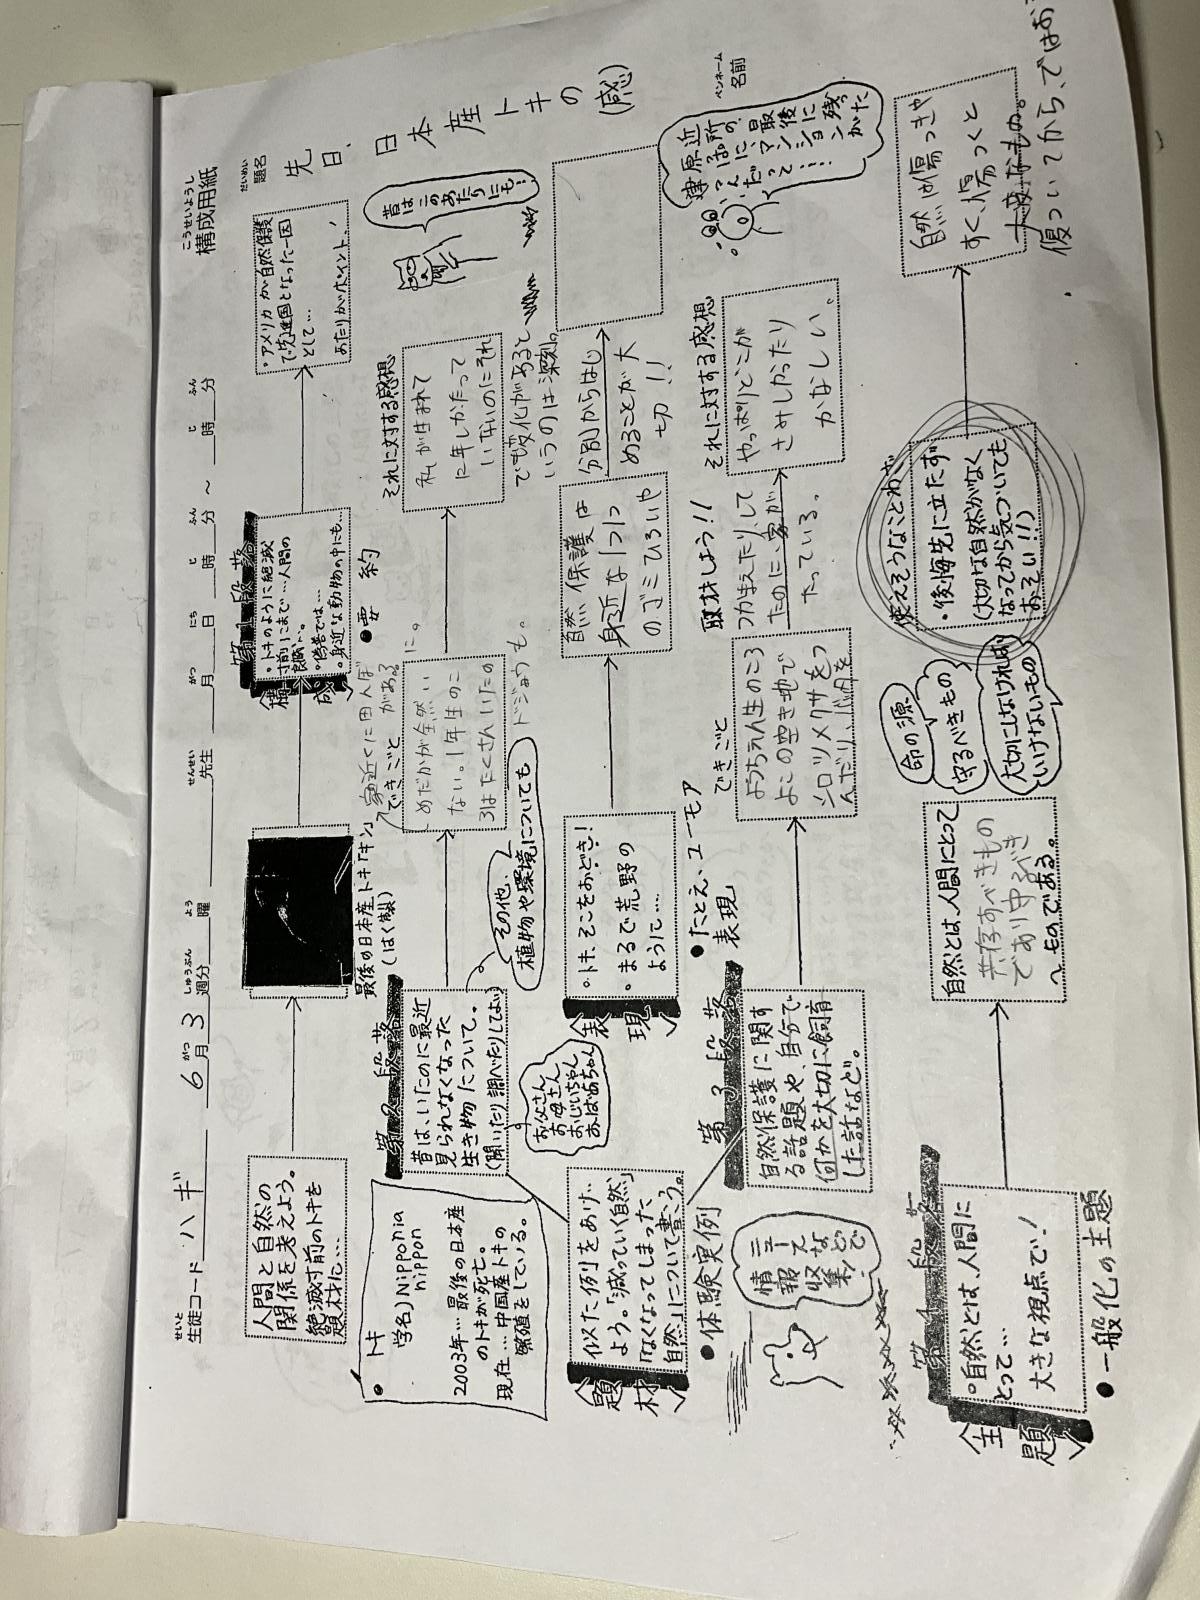 こうせいようし
構成用紙
せいと
生徒コード ハギ 6月3週分 曜 先生 月 日 時 分 ～ 時 分
がつ しゅうぶん よう せんせい がつ にち じ ふん じ ふん
だいめい
題名
先日、日本産トキの
(感)
ペンネーム
名前
人間と自然の
関係を考えよう。
絶滅寸前のトキを
題材に…
最後の日本産トキ「キン」
(はく製)
第1段落
<構成>
・トキのように絶滅
寸前にまで…人間の
・身近な動物の中にも…
・アメリカが自然保護
で先進国となった一因
として…
あたりがポイント!
●要約
●トキ
学名)Nipponia
nippon
2003年…最後の日本産
のトキが死亡。
現在…中国産トキの
繁殖をしている。
第2段落
昔は、いたのに最近
見られなくなった
生き物について。
(聞いたり調べたりしてよい)
お父さん
お母さん
おじいちゃん
おばあちゃん
その他、
植物や環境についても
できごと
めだかが全然い
ない。1年生のこ
ろはたくさんいたの
に。
ドジョウも。
それに対する感想
私が生まれて
に年しかたって
いないのにそれ
で変化があると
いうのは深刻。
昔はこのあたりにも…
<題材>
似た例をあげ
よう。「減っていく自然」
「なくなってしまった
自然」について書こう。
●体験実例
<表現>
・トキ、そこをおどき!
・まるで荒野の
ように…
●たとえ、ユーモア
表現
自然保護は
身近な1つ1つ
のゴミひろいや
分別からはじ
めることが大
切!!
第3段落
自然保護に関す
る話題や、自分で
何かを大切に飼育
した話など。
ニュースなどで
情報収集!
取材しよう!!
できごと
ようちえん生のころ
よこの空き地で
シロツメクサをつ
んだり、バッタを
つかまえたりして
たのに、家が
たっている。
それに対する感想
やっぱりどこか
さみしかったり
かなしい。
第4段落
<主題>
・自然とは、人間に
とって…
大きな視点で!
●一般化の主題
自然とは、人間にとって
共存すべきもの
であり守るべき
ものである。
命の源
守るべきもの
大切にしなければ
いけないもの
使えそうなことわざ
・後悔先に立たず
(大切な自然がなく
なってから気づいても
おそい!!)
自然は傷つきや
すく、傷つくと
大変なもの。
傷ついてから、ではお